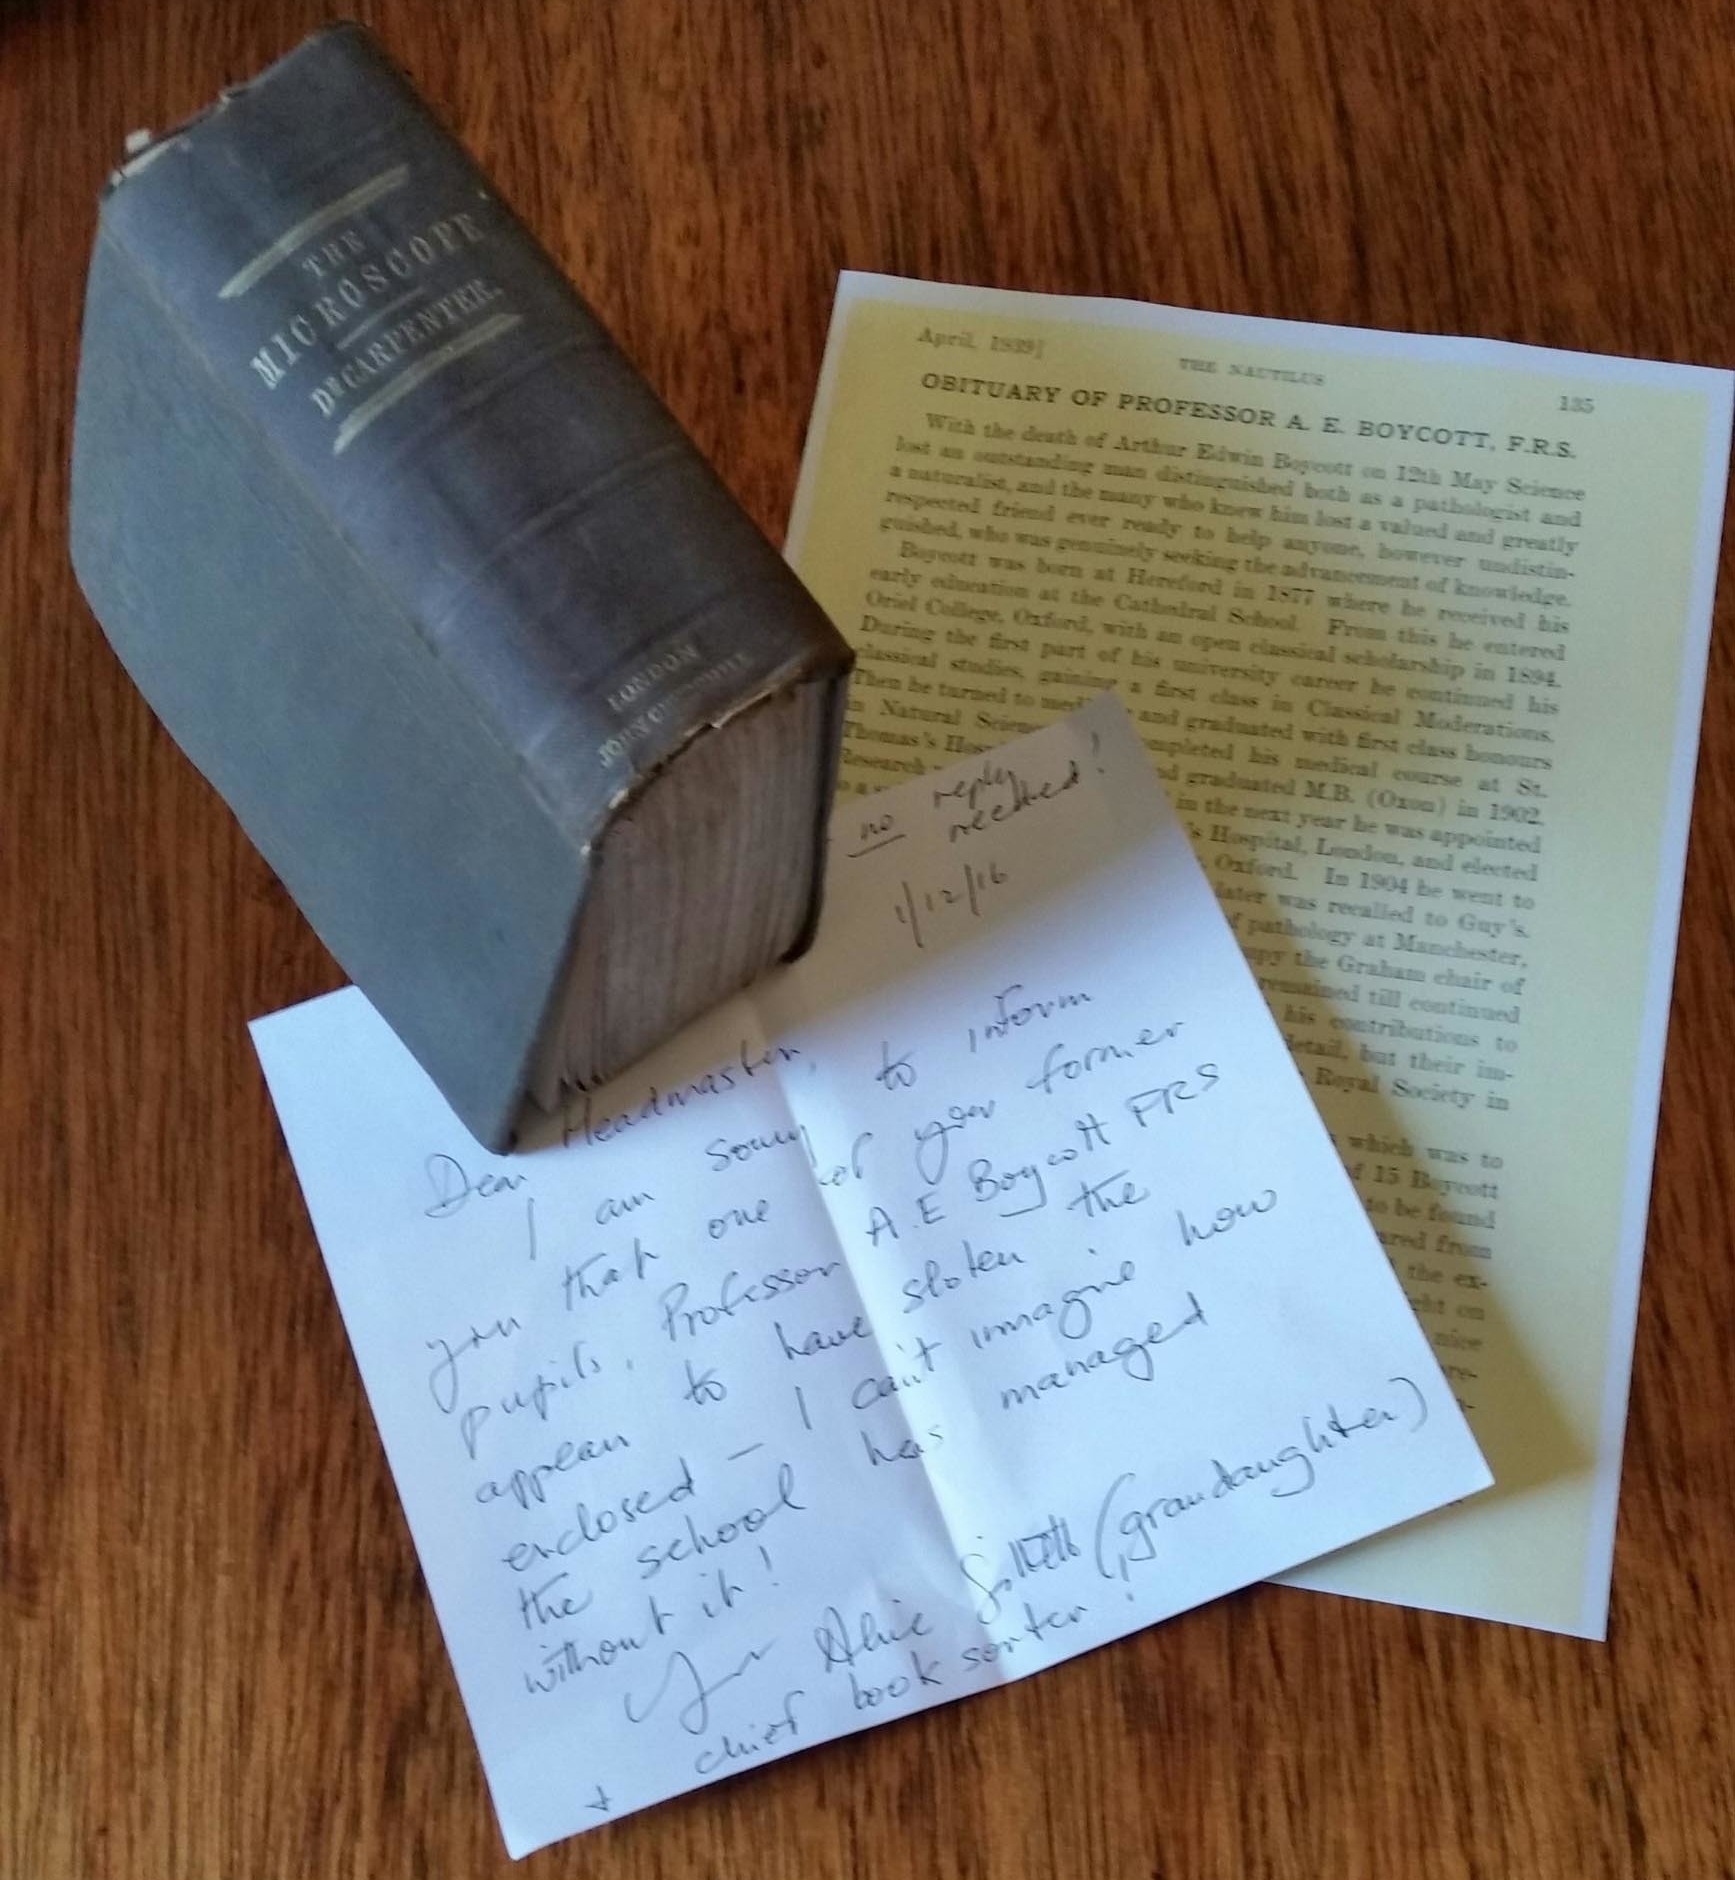 THE
MICROSCOPE
DR CARPENTER.
LONDON
April, 1939]
THE NAUTILUS
135
OBITUARY OF PROFESSOR A. E. BOYCOTT, F.R.S.
With the death of Arthur Edwin Boycott on 12th May Science
lost an outstanding man distinguished both as a pathologist and
a naturalist, and the many who knew him lost a valued and greatly
respected friend ever ready to help anyone, however undistin-
guished, who was genuinely seeking the advancement of knowledge.
Boycott was born at Hereford in 1877 where he received his
early education at the Cathedral School. From this he entered
Oriel College, Oxford, with an open classical scholarship in 1894.
During the first part of his university career he continued his
classical studies, gaining a first class in Classical Moderations.
Then he turned to and graduated with first class honours
in Natural completed his medical course at St.
Thomas's and graduated M.B. (Oxon) in 1902.
Research in the next year he was appointed
Hospital, London, and elected
Oxford. In 1904 he went to
later was recalled to Guy's.
of pathology at Manchester,
the Graham chair of
remained till continued
his contributions to
detail, but their im-
Royal Society in
which was to
of 15 Boycott
to be found
from
the ex-
on
nice
no reply
received!
1/12/16
Dear Headmaster,
I am sorry to inform
you that one of your former
pupils, Professor A.E Boycott FRS
appears to have stolen the
enclosed – I can't immagine how
the school has managed
without it!
Alice (grandaughter)
+ chief book sorter!